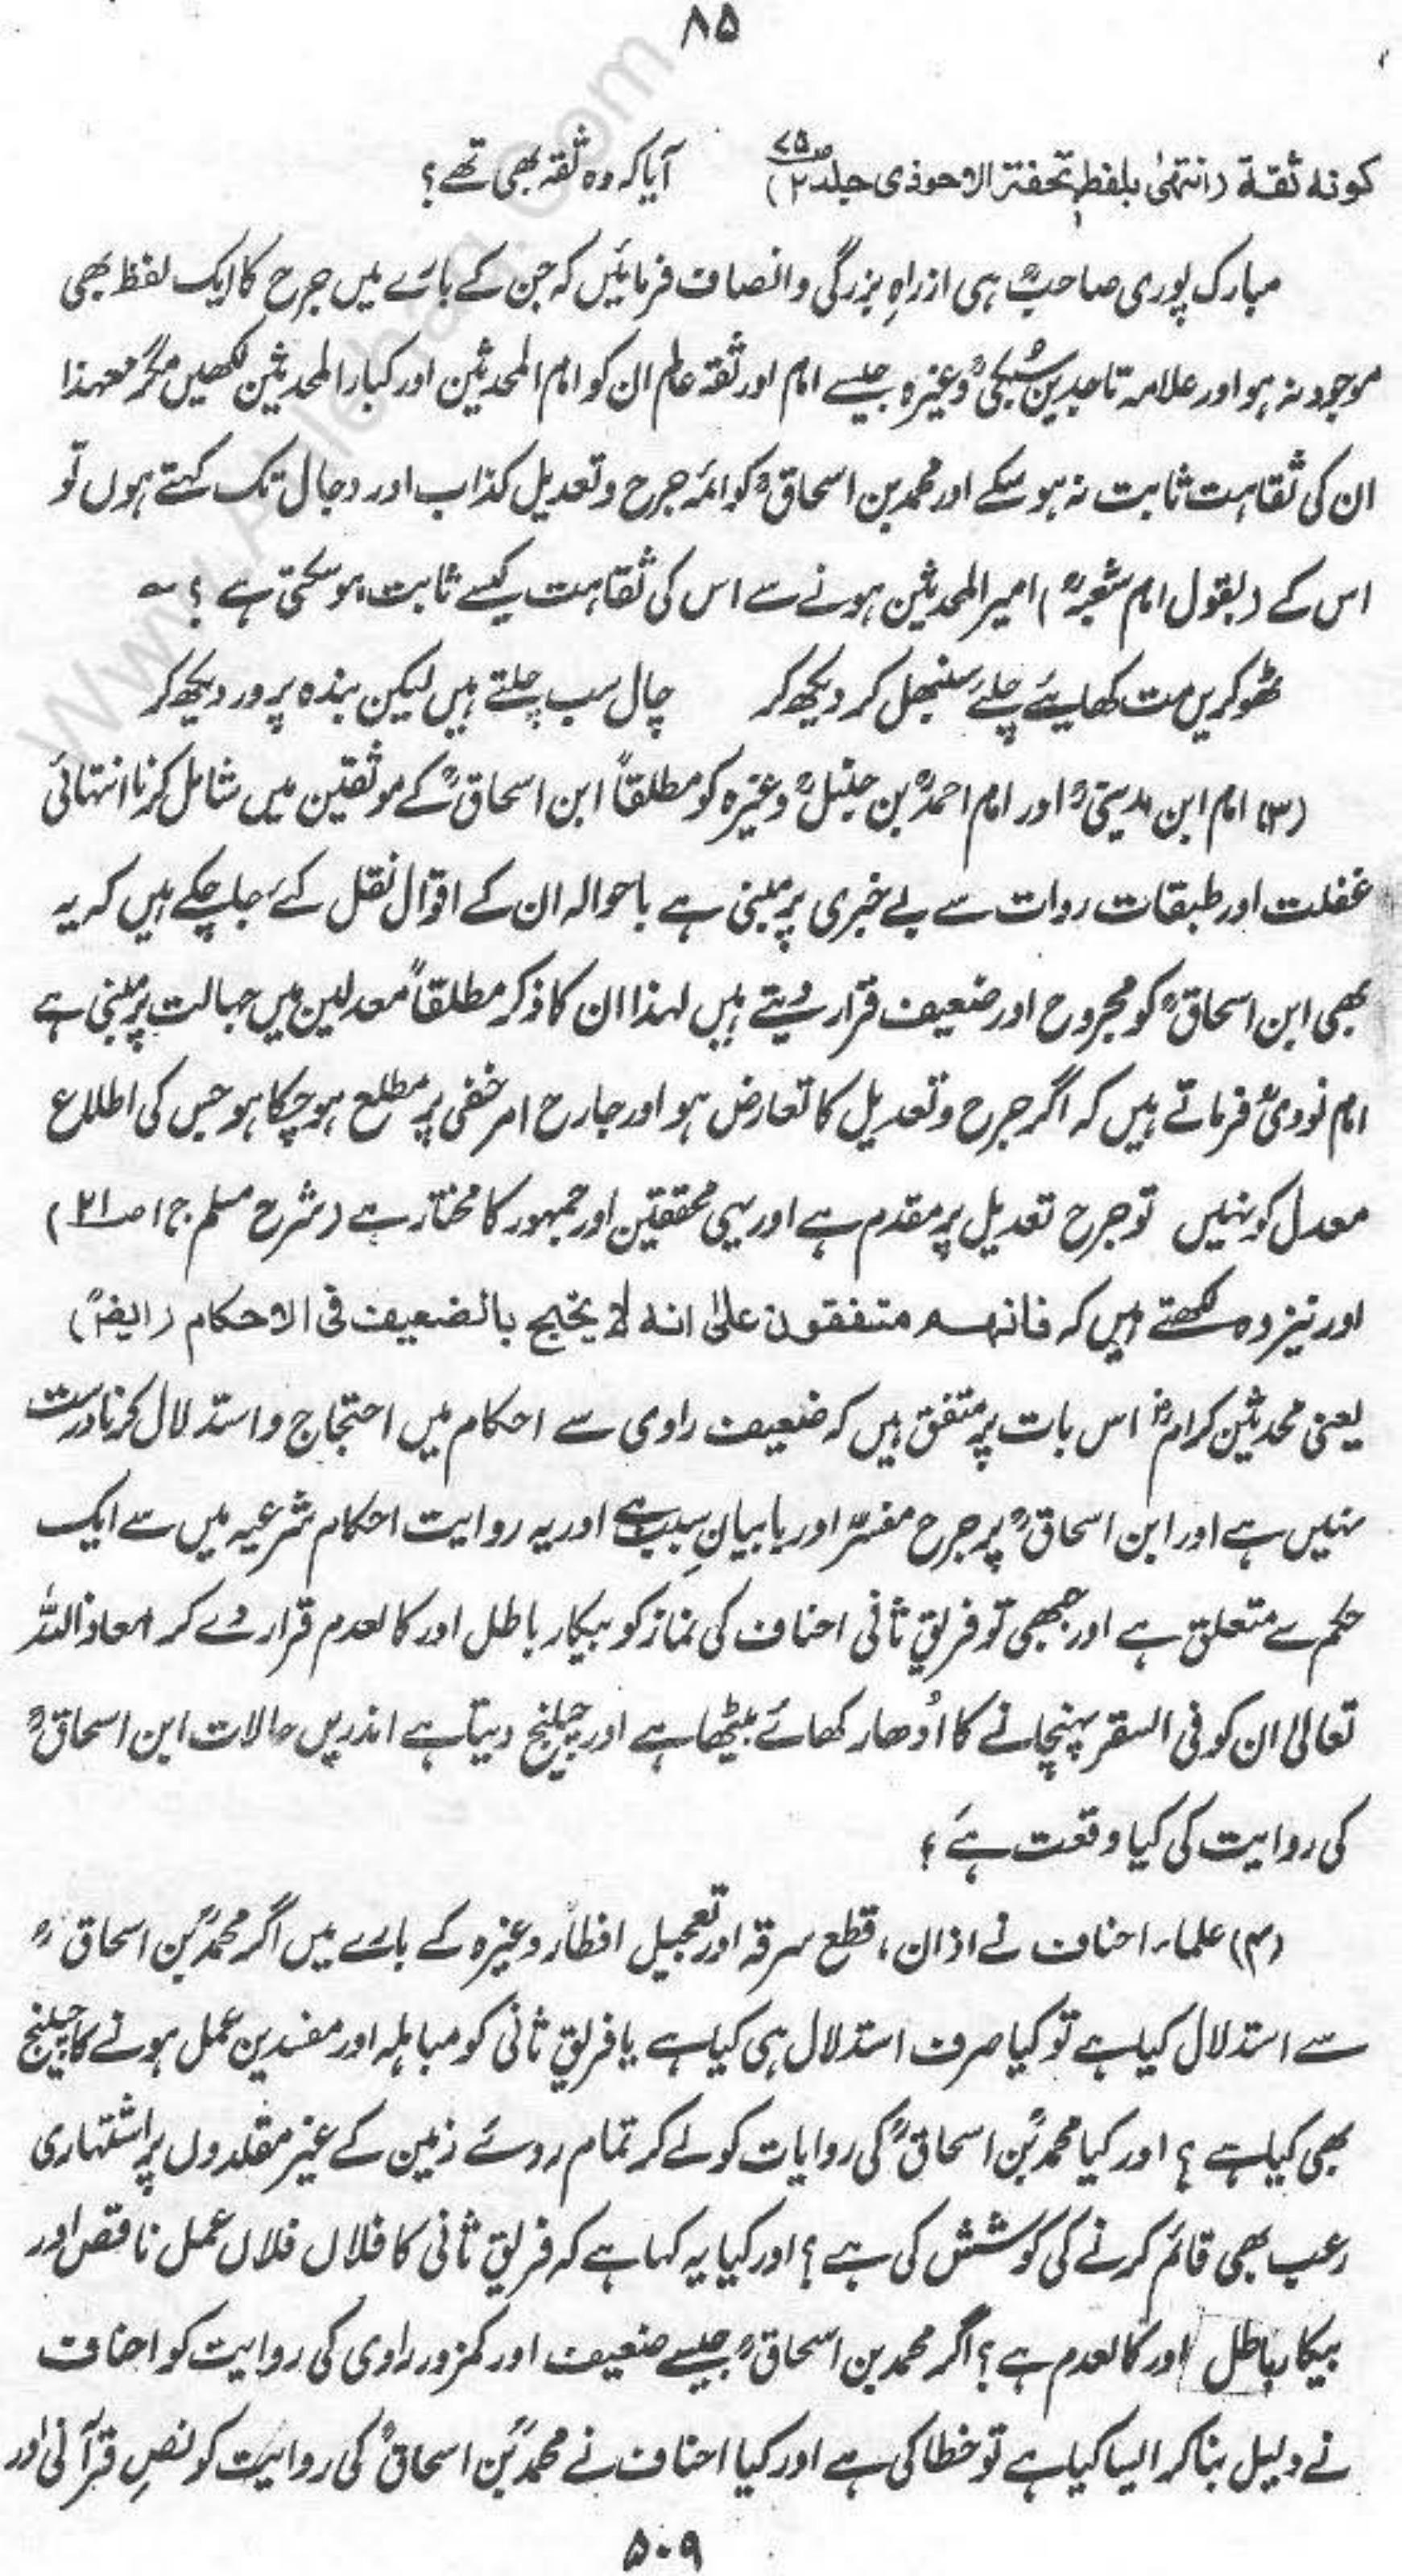 ۸۵
کونه ثقة (انتهیٰ بلفظہٖ تحفۃ الاحوذی جلد ۲ ص۷۵) آیا کہ وہ ثقہ بھی تھے؟
مبارک پوری صاحبؒ ہی ازراہِ بزرگی و انصاف فرمائیں کہ جن کے بارے میں جرح کا ایک لفظ بھی
موجود نہ ہو اور علامہ تاجدین سُبکیؒ وغیرہ جیسے امام اور ثقہ عالم ان کو امام المحدثین اور کبار المحدثین لکھیں مگر معہذا
ان کی ثقاہت ثابت نہ ہو سکے اور محمد بن اسحاقؒ کو ائمہ جرح و تعدیل کذاب اور دجال تک کہتے ہوں تو
اس کے (بقول امام شعبہؒ) امیر المحدثین ہونے سے اس کی ثقاہت کیسے ثابت ہو سکتی ہے؟ ؎
ٹھوکریں مت کھایئے چلئے سنبھل کر دیکھ کر چال سب چلتے ہیں لیکن بندہ پرور دیکھ کر
(۳) امام ابن مدینیؒ اور امام احمدؒ بن حنبلؒ وغیرہ کو مطلقاً ابن اسحاقؒ کے موثقین میں شامل کرنا انتہائی
غفلت اور طبقات روات سے بے خبری پر مبنی ہے باحوالہ ان کے اقوال نقل کئے جا چکے ہیں کہ یہ
بھی ابن اسحاقؒ کو مجروح اور ضعیف قرار دیتے ہیں لہذا ان کا ذکر مطلقاً معدلین میں جہالت پر مبنی ہے
امام نوویؒ فرماتے ہیں کہ اگر جرح و تعدیل کا تعارض ہو اور جارح امر خفی پر مطلع ہو چکا ہو جس کی اطلاع
معدل کو نہیں تو جرح تعدیل پر مقدم ہے اور یہی محققین اور جمہور کا مختار ہے (شرح مسلم ج۱ ص۲۱)
اور نیز وہ لکھتے ہیں کہ فانهم متفقون علیٰ انه لا یحتج بالضعیف فی الاحکام (ایضاً)
یعنی محدثین کرامؒ اس بات پر متفق ہیں کہ ضعیف راوی سے احکام میں احتجاج و استدلال کرنا درست
نہیں ہے اور ابن اسحاقؒ پر جرح مفسّر اور با بیانِ سبب ہے اور یہ روایت احکام شرعیہ میں سے ایک
حکم سے متعلق ہے اور جبھی تو فریق ثانی احناف کی نماز کو بیکار باطل اور کالعدم قرار دے کر معاذ اللہ
تعالیٰ ان کو فی السقر پہنچانے کا اُدھار کھائے بیٹھا ہے اور چیلنج دیتا ہے اندریں حالات ابن اسحاقؒ
کی روایت کی کیا وقعت ہے؟
(۴) علماء احناف نے اذان، قطع سرقہ اور تعجیل افطار وغیرہ کے بارے میں اگر محمدؒ بن اسحاقؒ
سے استدلال کیا ہے تو کیا صرف استدلال ہی کیا ہے یا فریق ثانی کو مباہلہ اور مفسدین عمل ہونے کا چیلنج
بھی کیا ہے؟ اور کیا محمدؒ بن اسحاقؒ کی روایات کو لے کر تمام روئے زمین کے غیر مقلدوں پر اشتہاری
رعب بھی قائم کرنے کی کوشش کی ہے؟ اور کیا یہ کہا ہے کہ فریق ثانی کا فلاں فلاں عمل ناقص اور
بیکار باطل اور کالعدم ہے؟ اگر محمد بن اسحاقؒ جیسے ضعیف اور کمزور راوی کی روایت کو احناف
نے دلیل بنا کر ایسا کیا ہے تو خطا کی ہے اور کیا احناف نے محمدؒ بن اسحاقؒ کی روایت کو نصِ قرآنی اور
۵۰۹